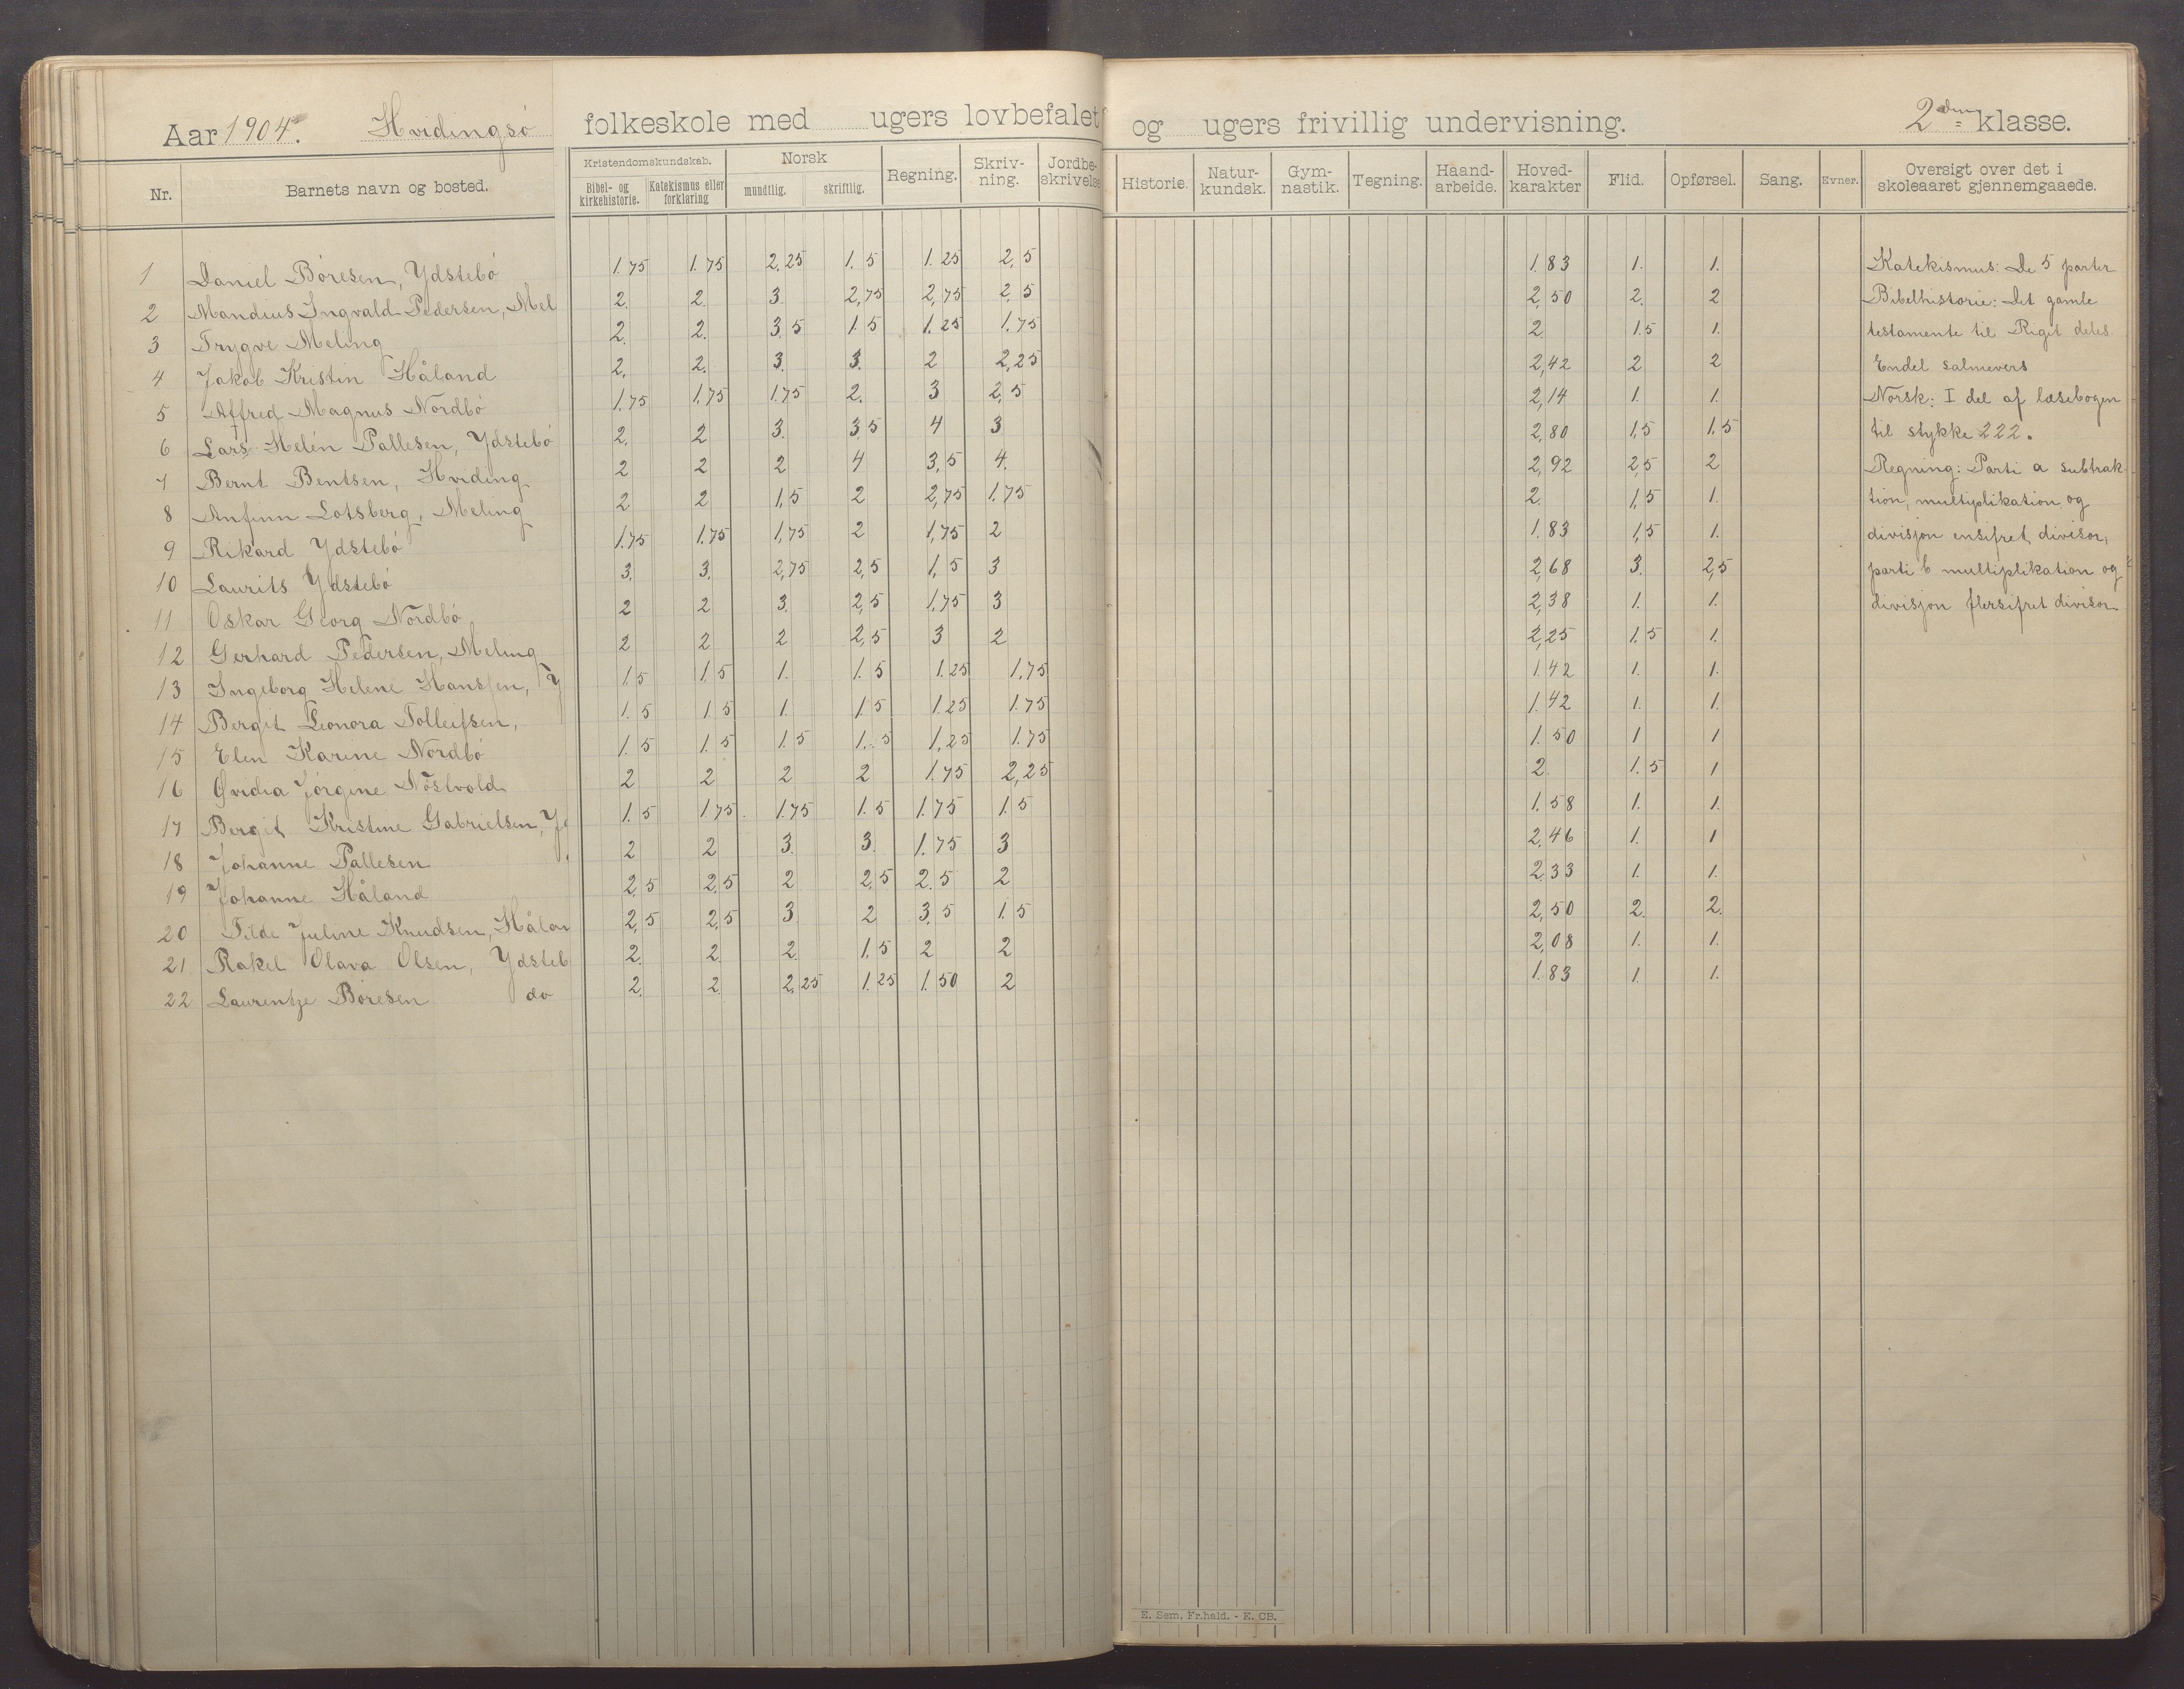 Aar 1904. Hvidingsö folkeskole med ugers lovbefalet og ugers frivillig undervisning. 2den klasse.
Nr. Barnets navn og bosted. Kristendomskundskab. Bibel- og kirkehistorie. Katekismus eller forklaring Norsk mundtlig. skriftlig. Regning. Skriv-ning. Jordbe-skrivelse Historie. Natur-kundsk. Gym-nastik. Tegning. Haand-arbeide. Hoved-karakter Flid. Opførsel. Sang. Evner. Oversigt over det i skoleaaret gjennemgaaede.
1 Daniel Böresen, Ydstebö 1.75 1.75 2,25 1.5 1.25 2,5 1.83 1. 1. Katekismus: De 5 parter
2 Mandius Ingvald Pedersen, Mel 2. 2. 3. 2,75 2,75 2,5 2,50 2. 2 Bibelhistorie: Det gamle
3 Trygve Meling 2. 2. 3.5 1.5 1.25 1.75 2. 1.5 1. testamente til Riget deles.
4 Jakob Kristin Håland 2. 2. 3. 3. 2 2,25 2,42 2 2 Endel salmevers
5 Affred Magnus Nordbö 1.75 1.75 1.75 2. 3 2,5 2,14 1. 1. Norsk: I del af læsebogen
6 Lars Helén Pallesen, Ydstebö 2. 2 3. 3.5 4 3 2,80 1,5 1.5 til stykke 222.
7 Bernt Bentsen, Hviding 2 2 2 4 3,5 4. 2,92 2,5 2 Regning: Parti a subtrak-
8 Anfinn Lotsberg, Meling 2. 2 1,5 2 2,75 1.75 2. 1,5 1. tion, multiplikation og
9 Rikard Ydstebö 1.75 1.75 1,75 2 1,75 2 1.83 1,5 1. divisjon ensifret divisor,
10 Laurits Ydstebö 3. 3. 2,75 2,5 1,5 3 2,68 3. 2,5 parti b multiplikation og
11 Oskar Georg Nordbö 2 2 3. 2,5 1,75 3 2,38 1. 1. divisjon flersifret divisor
12 Gerhard Pedersen, Meling 2 2 2 2,5 3 2 2,25 1.5 1.
13 Ingeborg Helene Hanssen, Y 1.5 1.5 1. 1.5 1.25 1.75 1.42 1. 1.
14 Bergit Leonora Tolleifsen, 1.5 1.5 1. 1.5 1.25 1.75 1.42 1. 1.
15 Elen Karine Nordbö 1.5 1.5 1.5 1.5 1,25 1.75 1.50 1 1
16 Ovidia Jörgine Nöstvold 2 2 2 2 1.75 2,25 2. 1.5 1
17 Bergit Kristine Gabrielsen, Yd 1.5 1.75 1.75 1.5 1.75 1.5 1.58 1. 1.
18 Johanne Pallesen 2 2 3. 3. 1.75 3 2,46 1. 1
19 Johanne Håland 2,5 2,5 2 2,5 2.5 2 2.33 1. 1.
20 Tilde Juline Knudsen, Hålan 2,5 2,5 3 2 3.5 1.5 2,50 2. 2.
21 Rakel Olava Olsen, Ydsteb 2. 2. 2. 1,5 2 2 2,08 1. 1.
22 Laurentze Böresen do 2. 2. 2,25 1.25 1.50 2 1.83 1. 1.
E. Sem, Fr.hald. - E. CB.